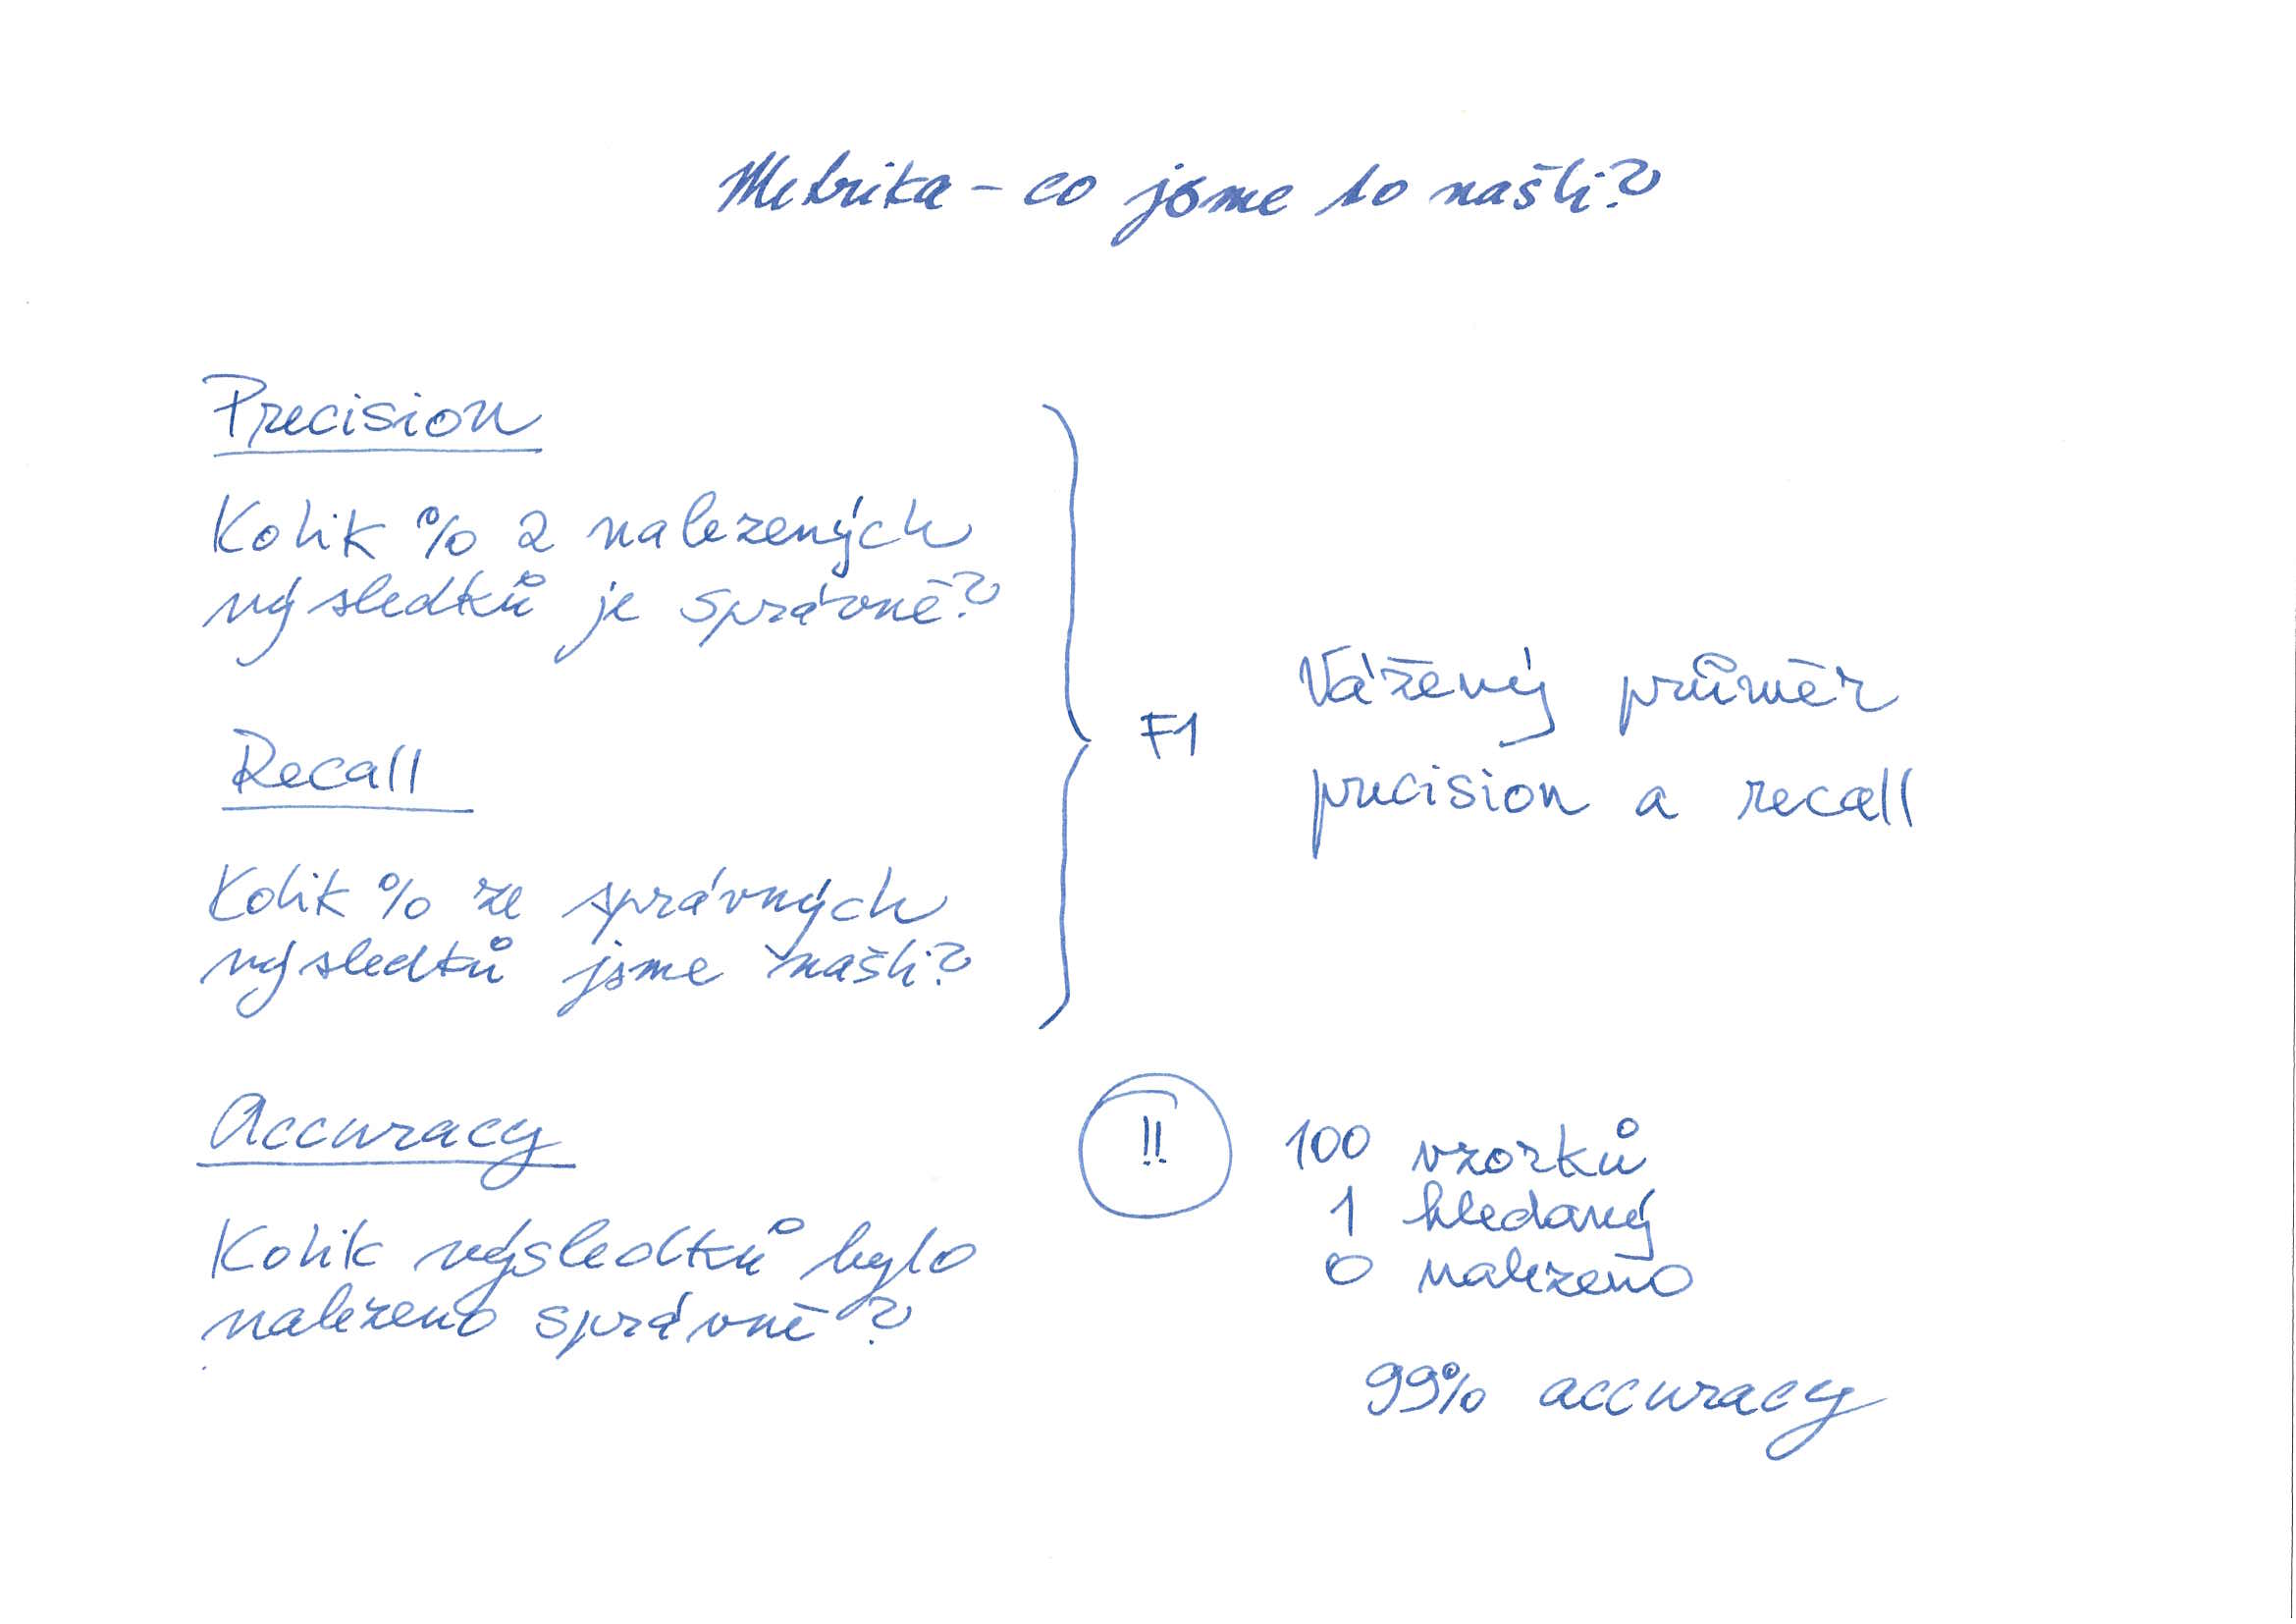 Metrika - co jsme to našli?
Precision
Kolik % z nalezených
výsledků je správně?
Recall
Kolik % ze správných
výsledků jsme našli?
F1
Vážený průměr
precision a recall
Accuracy
Kolik výsledků bylo
nalezeno správně?
!!
100 vzorků
1 hledaný
0 nalezeno
99% accuracy